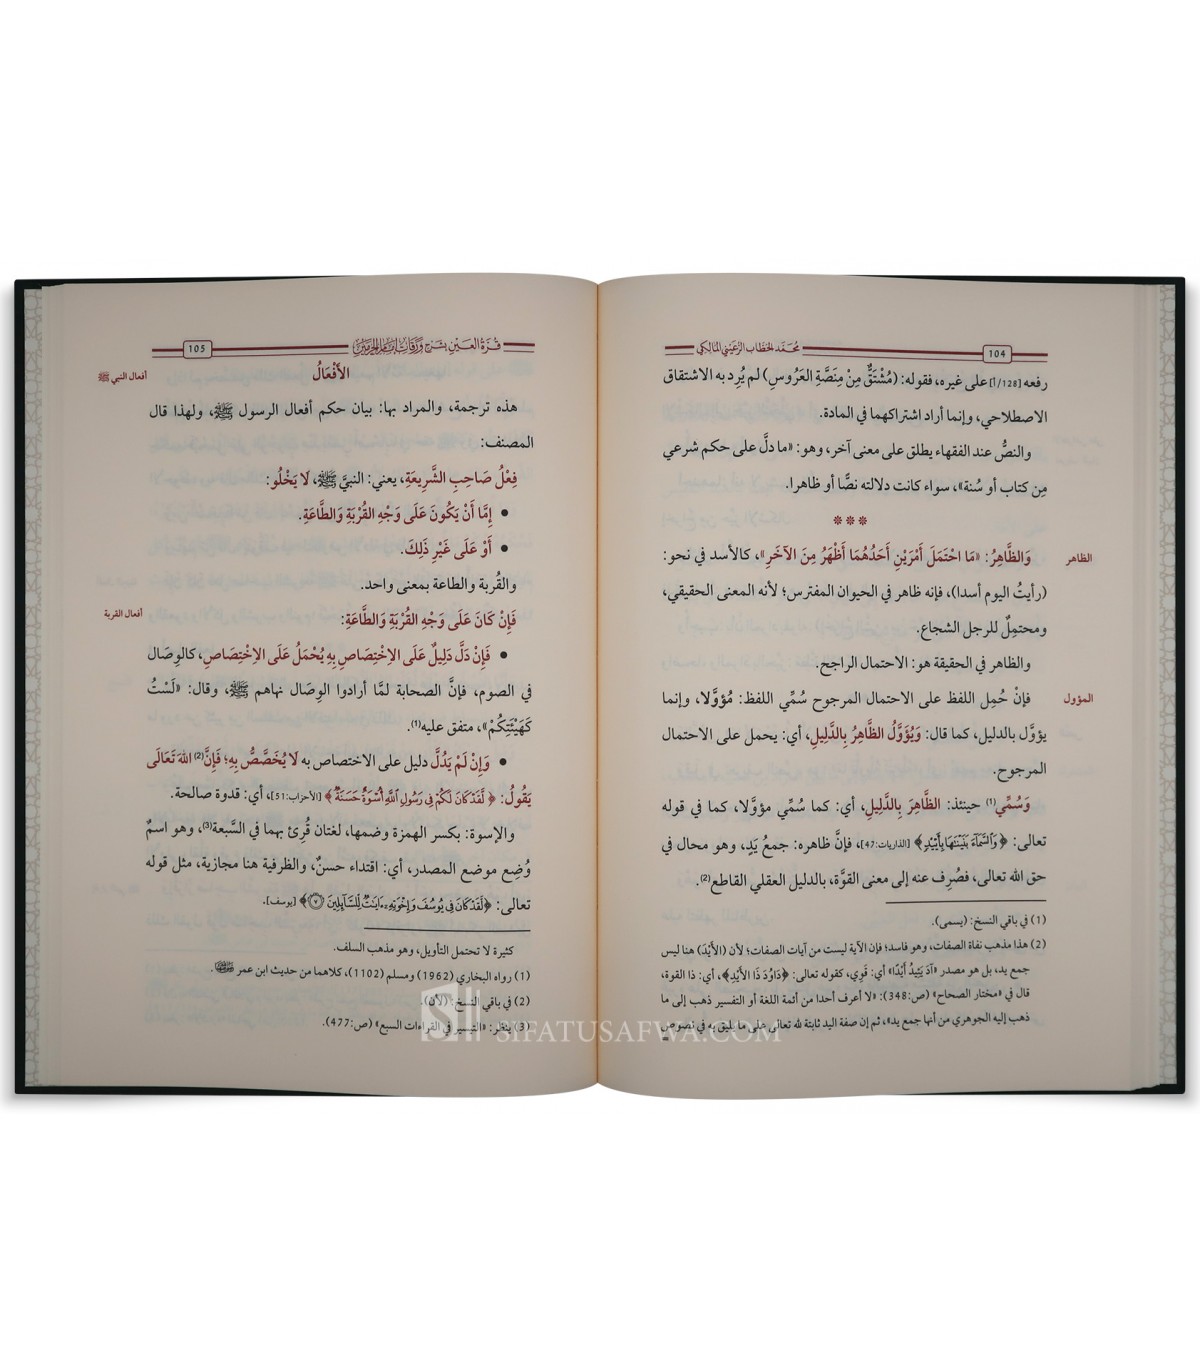 104
محمد الحطاب الرعيني المالكي
رفعه [128/أ] على غيره، فقوله: (مُشْتَقٌّ مِنْ مِنَصَّةِ العَرُوسِ) لم يُرِد به الاشتقاق
الاصطلاحي، وإنما أراد اشتراكهما في المادة.
والنصُّ عند الفقهاء يطلق على معنى آخر، وهو: «ما دلَّ على حكم شرعي
مِن كتاب أو سُنة»، سواء كانت دلالته نصًّا أو ظاهرا.
***
الظاهر
وَالظَّاهِرُ: «مَا احْتَمَلَ أَمْرَيْنِ أَحَدُهُمَا أَظْهَرُ مِنَ الآخَرِ»، كالأسد في نحو:
(رأيتُ اليوم أسدا)، فإنه ظاهر في الحيوان المفترس؛ لأنه المعنى الحقيقي،
ومحتمِلٌ للرجل الشجاع.
والظاهر في الحقيقة هو: الاحتمال الراجح.
المؤول
فإنْ حُمِل اللفظ على الاحتمال المرجوح سُمِّي اللفظ: مُؤوَّلا، وإنما
يؤوَّل بالدليل، كما قال: وَيُؤَوَّلُ الظَّاهِرُ بِالدَّلِيلِ، أي: يحمل على الاحتمال
المرجوح.
وَسُمِّي(1) حينئذ: الظَّاهِرَ بِالدَّلِيلِ، أي: كما سُمِّي مؤوَّلا، كما في قوله
تعالى: ﴿وَٱلسَّمَآءَ بَنَيْنَٰهَا بِأَيْي۟دٍ﴾ [الذاريات:47]، فإنَّ ظاهره: جمعُ يَدٍ، وهو محال في
حق الله تعالى، فصُرِف عنه إلى معنى القوَّة، بالدليل العقلي القاطع(2).
(1) في باقي النسخ: (يسمى).
(2) هذا مذهب نفاة الصفات، وهو فاسد؛ فإن الآية ليست من آيات الصفات؛ لأن (الأَيْدَ) هنا ليس
جمع يد، بل هو مصدر «آدَ يَئِيدُ أَيْدًا» أي: قَوِي، كقوله تعالى: ﴿دَاوُدَ ذَا الأَيْدِ﴾، أي: ذا القوة،
قال في «مختار الصحاح» (ص:348): «لا أعرف أحدا من أئمة اللغة أو التفسير ذهب إلى ما
ذهب إليه الجوهري من أنها جمع يد»، ثم إن صفة اليد ثابتة لله تعالى على ما يليق به في نصوص
=
قرة العين بشرح ورقات إمام الحرمين
105
الأَفْعَالُ
أفعال النبي ﷺ
هذه ترجمة، والمراد بها: بيان حكم أفعال الرسول ﷺ، ولهذا قال
المصنف:
فِعْلُ صَاحِبِ الشَّرِيعَةِ، يعني: النبيَّ ﷺ، لَا يَخْلُو:
• إِمَّا أَنْ يَكُونَ عَلَى وَجْهِ القُرْبَةِ وَالطَّاعَةِ.
• أَوْ عَلَى غَيْرِ ذَلِكَ.
والقُربة والطاعة بمعنى واحد.
أفعال القربة
فَإِنْ كَانَ عَلَى وَجْهِ القُرْبَةِ وَالطَّاعَةِ:
• فَإِنْ دَلَّ دَلِيلٌ عَلَى الاِخْتِصَاصِ بِهِ يُحْمَلُ عَلَى الاِخْتِصَاصِ، كالوِصَال
في الصوم، فإنَّ الصحابة لمَّا أرادوا الوِصَال نهاهم ﷺ، وقال: «لَسْتُ
كَهَيْئَتِكُمْ»، متفق عليه(1).
• وَإِنْ لَمْ يَدُلَّ دليل على الاختصاص به لَا يُخَصَّصُ بِهِ؛ فَإِنَّ(2) اللهَ تَعَالَى
يَقُولُ: ﴿لَقَدْ كَانَ لَكُمْ فِي رَسُولِ اللَّهِ أُسْوَةٌ حَسَنَةٌ﴾ [الأحزاب:51]، أي: قدوة صالحة.
والإسوة: بكسر الهمزة وضمها، لغتان قُرِئ بهما في السَّبعة(3)، وهو اسمٌ
وُضِع موضع المصدر، أي: اقتداء حسنٌ، والظرفية هنا مجازية، مثل قوله
تعالى: ﴿لَقَدْ كَانَ فِي يُوسُفَ وَإِخْوَتِهِۦٓ ءَايَٰتٌ لِّلسَّآئِلِينَ ٧﴾ [يوسف].
كثيرة لا تحتمل التأويل، وهو مذهب السلف.
(1) رواه البخاري (1962) ومسلم (1102)، كلاهما من حديث ابن عمر.
(2) في باقي النسخ: (لأن).
(3) ينظر: «التيسير في القراءات السبع» (ص:477).
SIFATUSAFWA.COM